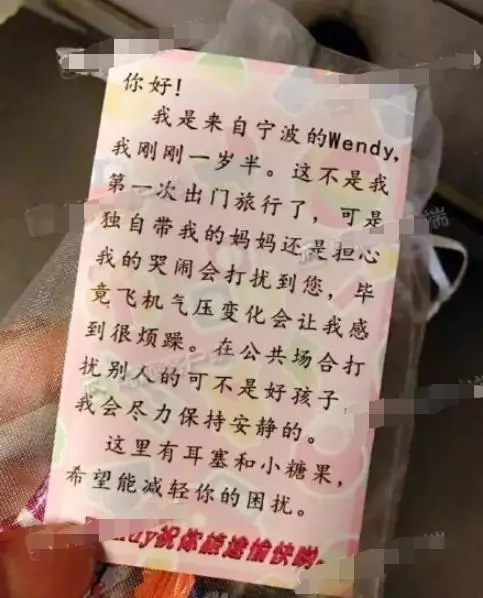 你好!
我是来自宁波的Wendy,
我刚刚一岁半。这不是我
第一次出门旅行了，可是
独自带我的妈妈还是担心
我的哭闹会打扰到您，毕
竟飞机气压变化会让我感
到很烦躁。在公共场合打
扰别人的可不是好孩子，
我会尽力保持安静的。
这里有耳塞和小糖果，
希望能减轻你的困扰。
ndy祝你旅途愉快哟~